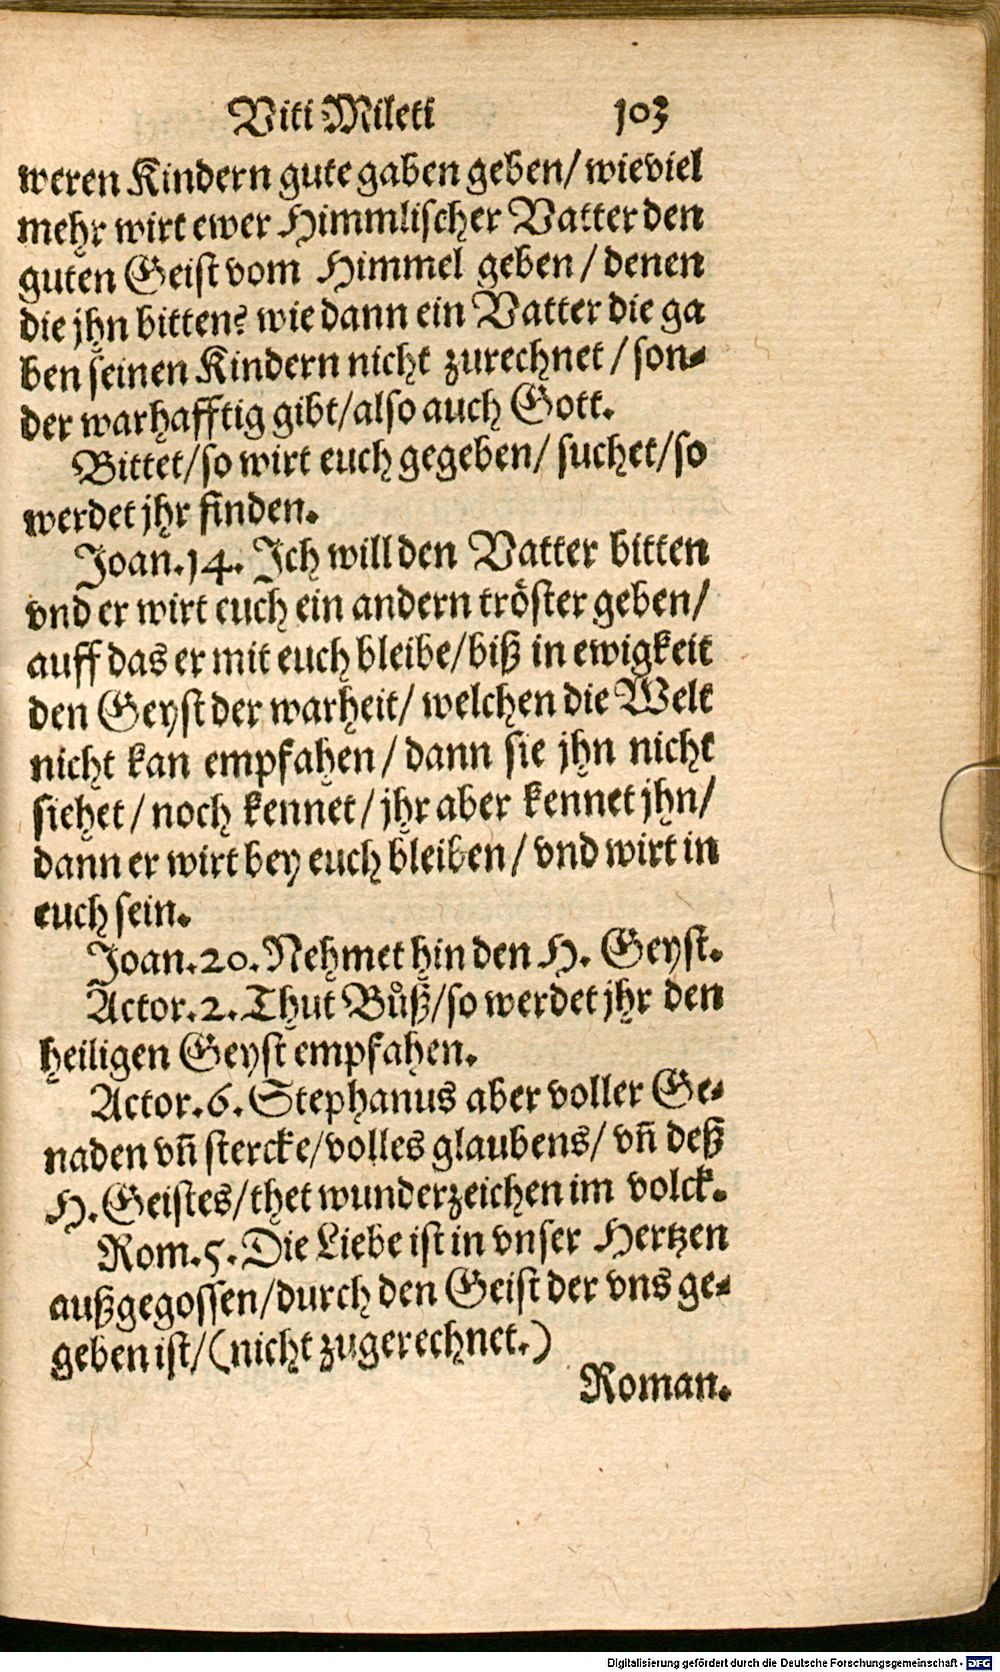 Viti Mileti 103
weren Kindern gute gaben geben/ wieviel
mehr wirt ewer Himmlischer Vatter den
guten Geist vom Himmel geben / denen
die jhn bitten? wie dann ein Vatter die ga
ben seinen Kindern nicht zurechnet / son⸗
der warhafftig gibt/also auch Gott.
Bittet/so wirt euch gegeben/ suchet/so
werdet jhr finden.
Joan.14. Ich will den Vatter bitten
vnd er wirt euch ein andern tröster geben/
auff das er mit euch bleibe/biß in ewigkeit
den Geyst der warheit/ welchen die Welt
nicht kan empfahen / dann sie jhn nicht
siehet / noch kennet / jhr aber kennet jhn/
dann er wirt bey euch bleiben / vnd wirt in
euch sein.
Joan.20.Nehmet hin den H. Geyst.
Actor.2.Thut Bůß/so werdet jhr den
heiligen Geyst empfahen.
Actor.6.Stephanus aber voller Ge⸗
naden vñ stercke/volles glaubens/ vñ deß
H.Geistes/thet wunderzeichen im volck.
Rom.5.Die Liebe ist in vnser Hertzen
außgegossen/durch den Geist der vns ge⸗
geben ist/(nicht zugerechnet.)
Roman.
Digitalisierung gefördert durch die Deutsche Forschungsgemeinschaft - DFG